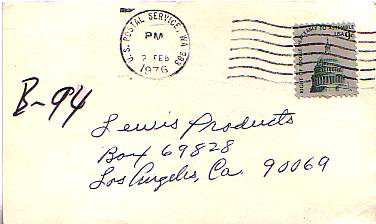 U.S. POSTAL SERVICE, WA 983
PM
7 FEB
1976
TO ASSEMBLE
USA 9c
B-94
Lewis Products
Box 69828
Los Angeles, Ca. 90069